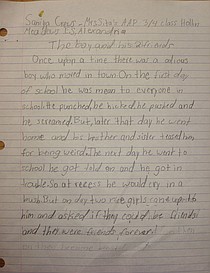 Mrs. AAP 3/4 class
Meadows E.S. Alexandria
The boy and his
Once upon a time there was a
boy who moved in town. On the first day
of school he was mean to everyone in
school. He punched, he kicked, he pushed and
he screamed. But, later that day he went
home and his brother and sister teased him
for being weird. The next day he went to
school he got told on and he got in
trouble. So at recess he would cry in a
bush. But on day two girls came up to
him and asked if they could be friends
and they were friends